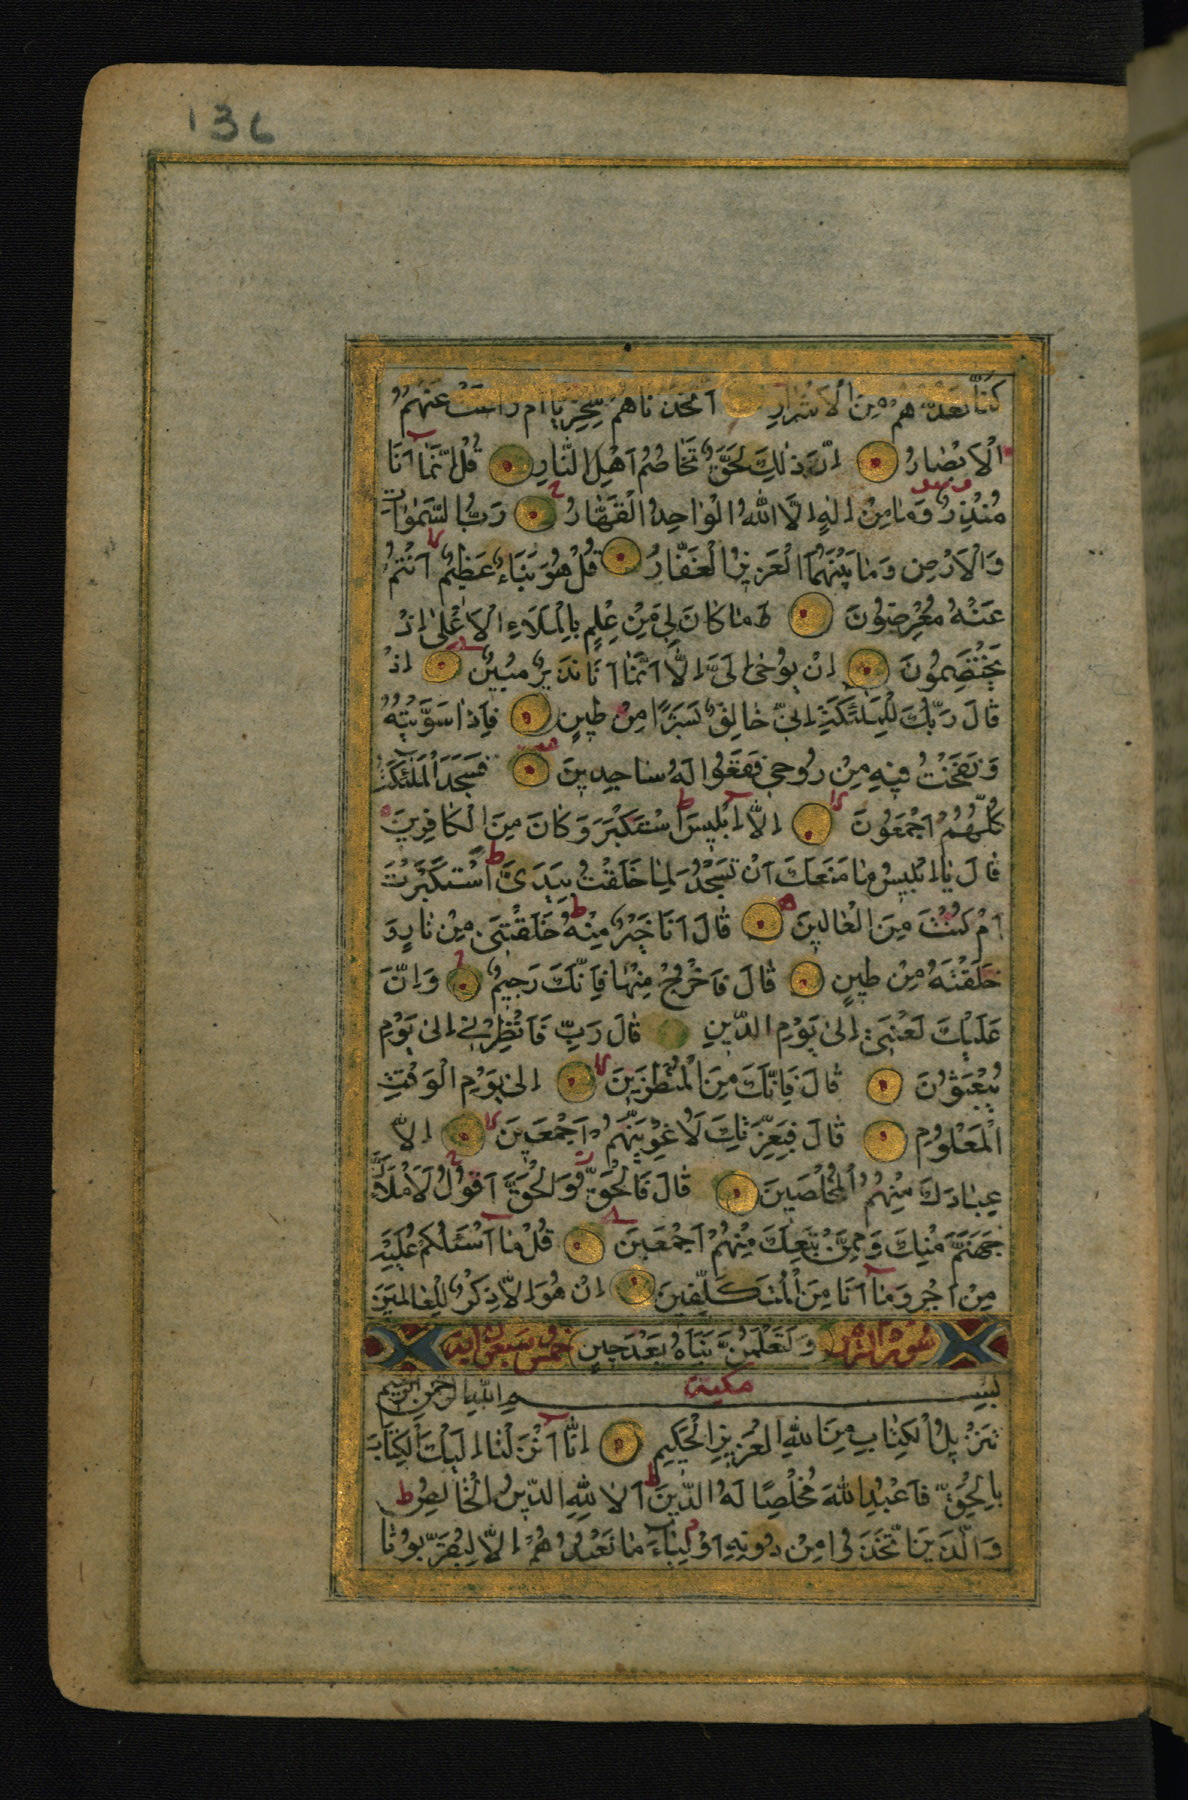 136
كُنَّا نَعُدُّهُمْ مِنَ الْاَشْرَارِ اَتَّخَذْنَاهُمْ سِخْرِيًّا اَمْ زَاغَتْ عَنْهُمُ
الْاَبْصَارُ اِنَّ ذٰلِكَ لَحَقٌّ تَخَاصُمُ اَهْلِ النَّارِ قُلْ اِنَّمَا اَنَا
مُنْذِرٌ وَمَا مِنْ اِلٰهٍ اِلَّا اللّٰهُ الْوَاحِدُ الْقَهَّارُ رَبُّ السَّمٰوَاتِ
وَالْاَرْضِ وَمَا بَيْنَهُمَا الْعَزِيزُ الْغَفَّارُ قُلْ هُوَ نَبَاءٌ عَظِيمٌ اَنْتُمْ
عَنْهُ مُعْرِضُونَ مَا كَانَ لِيَ مِنْ عِلْمٍ بِالْمَلَاءِ الْاَعْلٰى اِذْ
يَخْتَصِمُونَ اِنْ يُوحٰى اِلَيَّ اِلَّا اَنَّمَا اَنَا نَذِيرٌ مُبِينٌ اِذْ
قَالَ رَبُّكَ لِلْمَلٰئِكَةِ اِنِّي خَالِقٌ بَشَرًا مِنْ طِينٍ فَاِذَا سَوَّيْتُهُ
وَنَفَخْتُ فِيهِ مِنْ رُوحِي فَقَعُوا لَهُ سَاجِدِينَ فَسَجَدَ الْمَلٰئِكَةُ
كُلُّهُمْ اَجْمَعُونَ اِلَّا اِبْلِيسَ اسْتَكْبَرَ وَكَانَ مِنَ الْكَافِرِينَ
قَالَ يَا اِبْلِيسُ مَا مَنَعَكَ اَنْ تَسْجُدَ لِمَا خَلَقْتُ بِيَدَيَّ اَسْتَكْبَرْتَ
اَمْ كُنْتَ مِنَ الْعَالِينَ قَالَ اَنَا خَيْرٌ مِنْهُ خَلَقْتَنِي مِنْ نَارٍ وَ
خَلَقْتَهُ مِنْ طِينٍ قَالَ فَاخْرُجْ مِنْهَا فَاِنَّكَ رَجِيمٌ وَاِنَّ
عَلَيْكَ لَعْنَتِي اِلٰى يَوْمِ الدِّينِ قَالَ رَبِّ فَاَنْظِرْنِي اِلٰى يَوْمِ
يُبْعَثُونَ قَالَ فَاِنَّكَ مِنَ الْمُنْظَرِينَ اِلٰى يَوْمِ الْوَقْتِ
الْمَعْلُومِ قَالَ فَبِعِزَّتِكَ لَاُغْوِيَنَّهُمْ اَجْمَعِينَ اِلَّا
عِبَادَكَ مِنْهُمُ الْمُخْلَصِينَ قَالَ فَالْحَقُّ وَالْحَقَّ اَقُولُ لَاَمْلَاَنَّ
جَهَنَّمَ مِنْكَ وَمِمَّنْ تَبِعَكَ مِنْهُمْ اَجْمَعِينَ قُلْ مَا اَسْئَلُكُمْ عَلَيْهِ
مِنْ اَجْرٍ وَمَا اَنَا مِنَ الْمُتَكَلِّفِينَ اِنْ هُوَ اِلَّا ذِكْرٌ لِلْعَالَمِينَ
سورة الزمر وَلَتَعْلَمُنَّ نَبَاَهُ بَعْدَ حِينٍ خمس سبعون اية
بِسْمِ اللّٰهِ الرَّحْمٰنِ الرَّحِيمِ مكية
تَنْزِيلُ الْكِتَابِ مِنَ اللّٰهِ الْعَزِيزِ الْحَكِيمِ اِنَّا اَنْزَلْنَا اِلَيْكَ الْكِتَابَ
بِالْحَقِّ فَاعْبُدِ اللّٰهَ مُخْلِصًا لَهُ الدِّينَ اَلَا لِلّٰهِ الدِّينُ الْخَالِصُ
وَالَّذِينَ اتَّخَذُوا مِنْ دُونِهِ اَوْلِيَاءَ مَا نَعْبُدُهُمْ اِلَّا لِيُقَرِّبُونَا